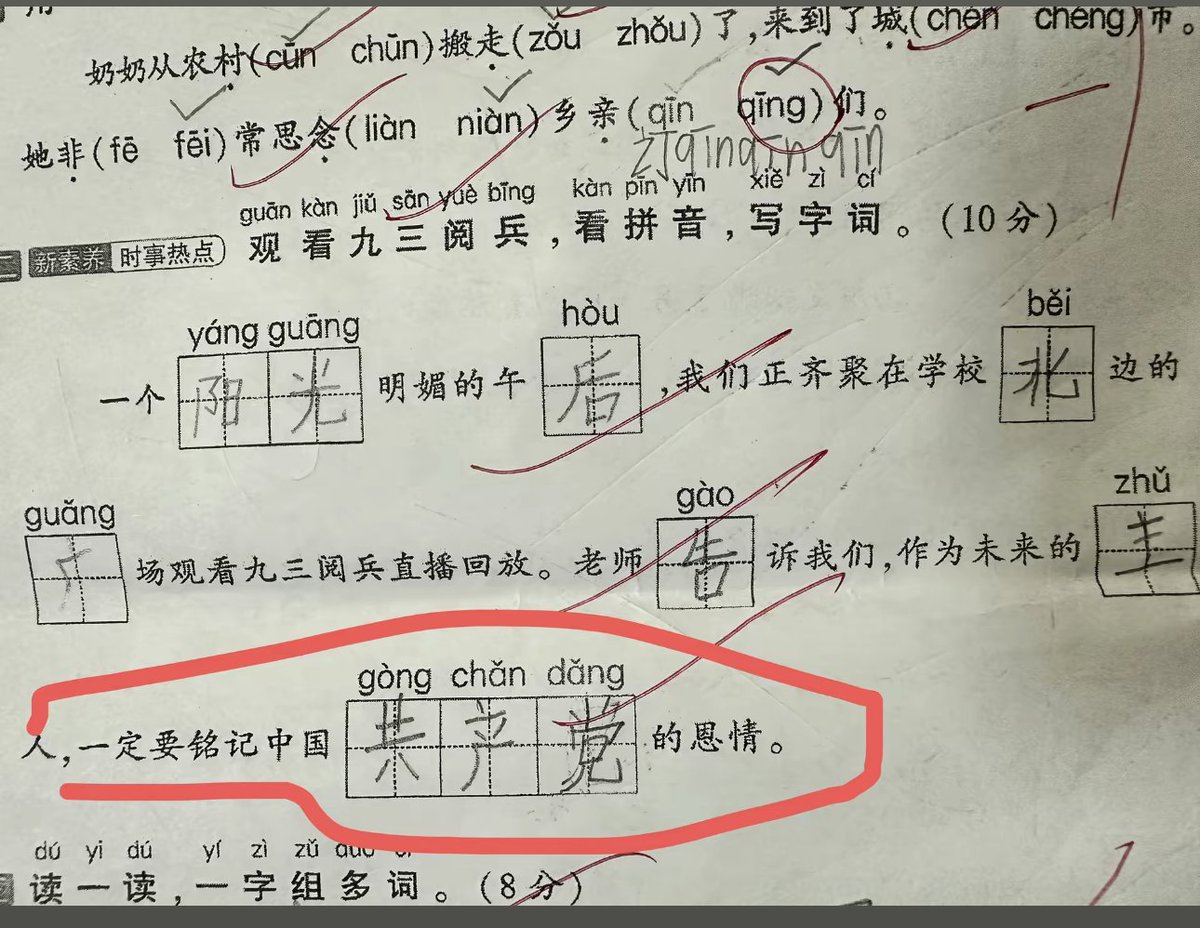 奶奶从农村(cūn chūn)搬走(zǒu zhǒu)了,来到了城(chén chéng)市。
她非(fē fēi)常思念(liàn niàn)乡亲(qīn qīng)们。
qīn qīn qīn
guān kàn jiǔ sān yuè bīng kàn pīn yīn xiě zì cí
二 新素养 时事热点 观看九三阅兵,看拼音,写字词。(10分)
yáng guāng hòu běi
一个阳光明媚的午后,我们正齐聚在学校北边的
guǎng gào zhǔ
广场观看九三阅兵直播回放。老师告诉我们,作为未来的主
gòng chǎn dǎng
人,一定要铭记中国共产党的恩情。
dú yi dú yí zì zǔ duō cí
读一读,一字组多词。(8分)